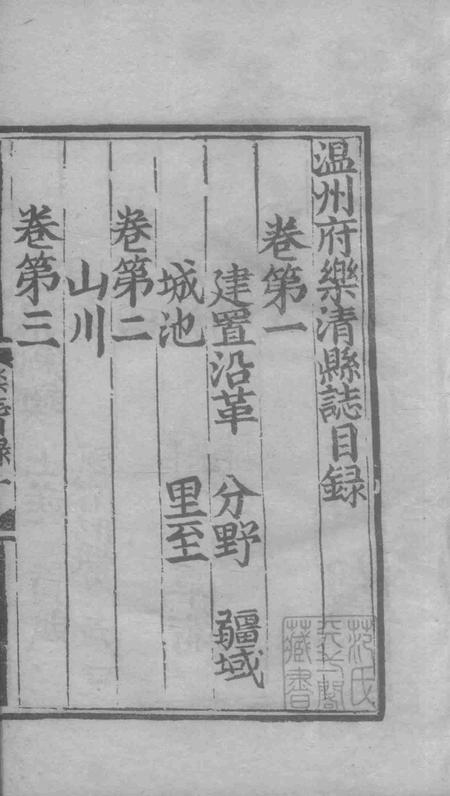 温州府樂清縣誌目録
卷第一
建置沿革 分野 疆域
城池 里至
卷第二
山川
卷第三
范氏天一閣藏書